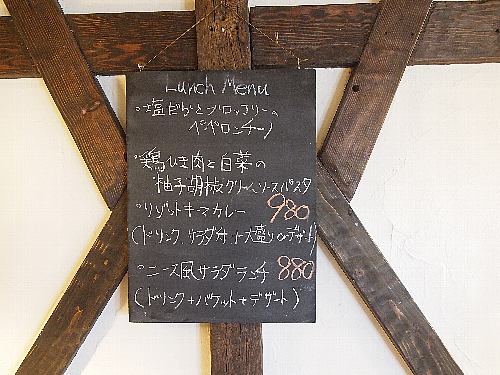 Lunch Menu
・塩だらとブロッコリーの
ペペロンチーノ
・鶏ひき肉と白菜の
柚子胡椒クリームソースパスタ
・リゾットキーマカレー 980
(ドリンク、サラダ付 大盛りorデザート)
・ニース風サラダランチ 880
(ドリンク+バケット+デザート)